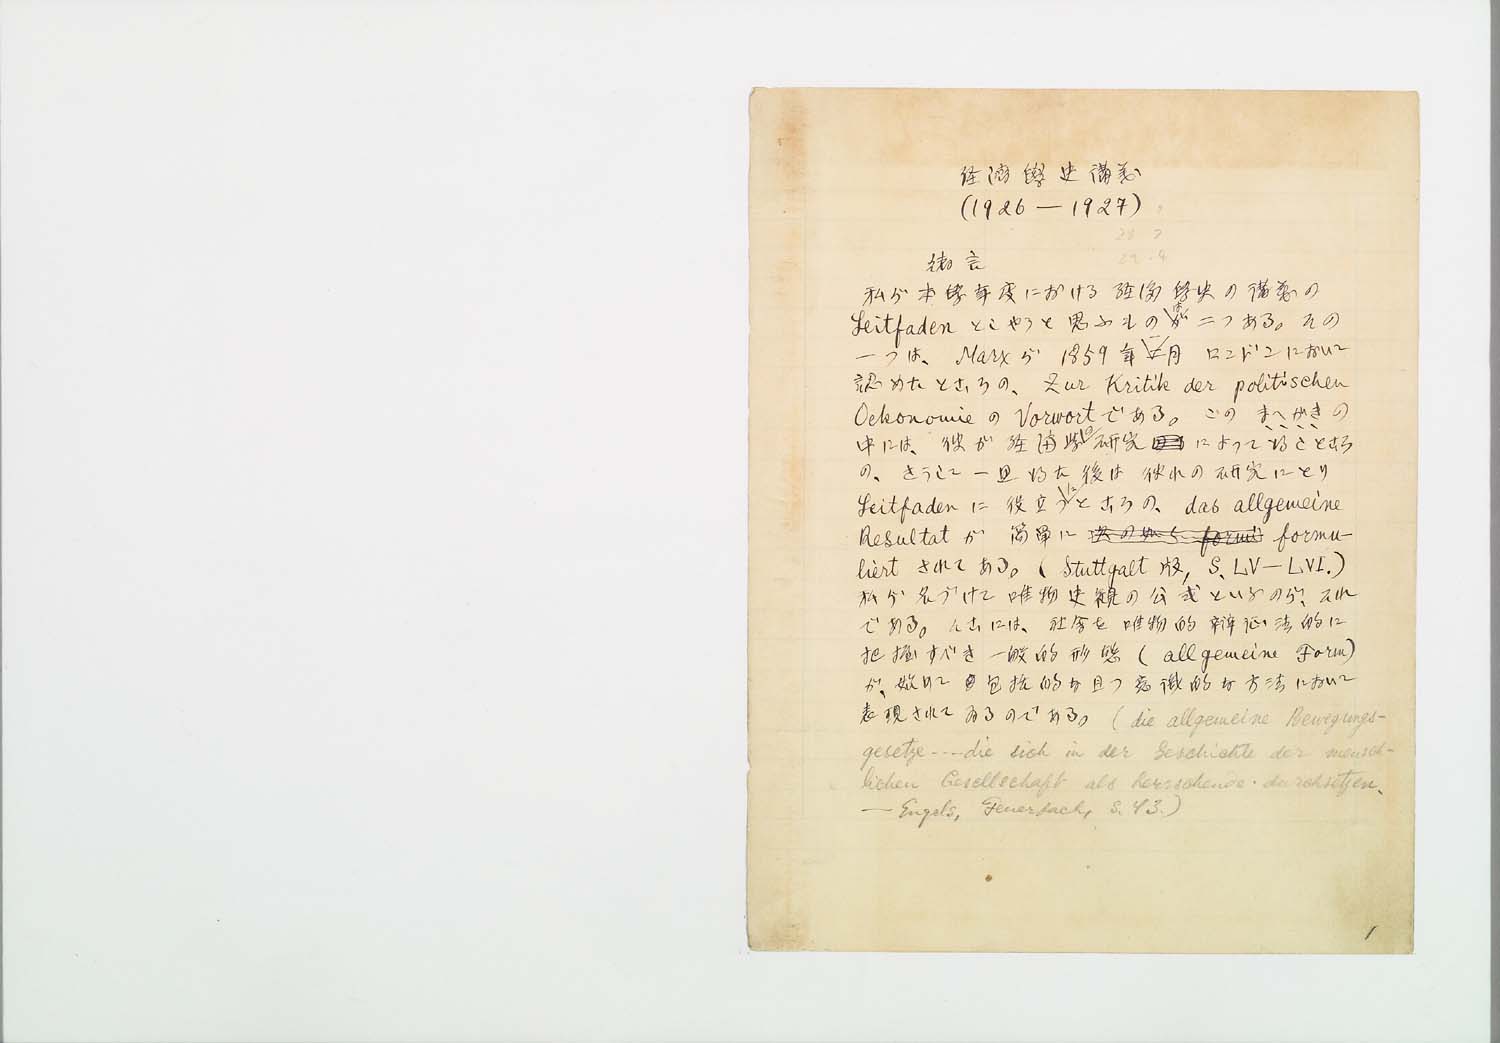 経済學史講義
(1926 — 1927)
28 7
29.4
緒言
私が本學年度における経済學史の講義の
Leitfadenとしやうと思ふものが二つある。その
一つは、Marxが1859年一月ロンドンにおいて
認めたところの、Zur Kritik der politischen
OekonomieのVorwortである。このまへがきの
中には、彼が経済學の研究によって得たところ
の、さうして一旦得た後は彼れの研究にとり
Leitfadenに役立つたところの、das allgemeine
Resultatが簡単に formu-
liertされてある。(Stuttgalt版, S. LV—LVI.)
私が名づけて唯物史観の公式といふのが、それ
である。そこには、社会を唯物的辯証法的に
把握すべき一般的形態(allgemeine Form)
が、始めて包括的な且つ意識的な方法において
表現されてゐるのである。(die allgemeine Bewegungs-
gesetze----die sich in der Geschichte der mensch-
lichen Gesellschaft als herrschende durchsetzen.
— Engels, Feuerbach, S. 43.)
1